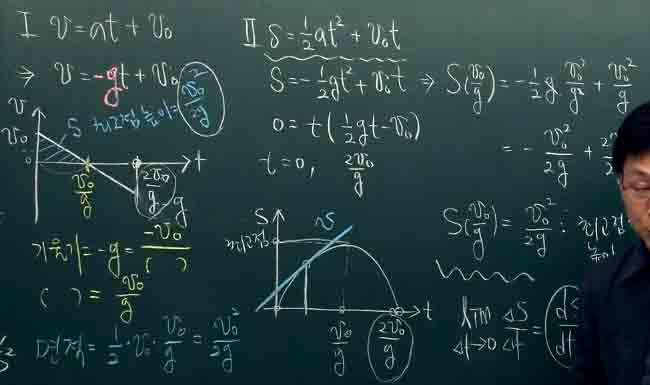 I v = at + v₀
⇒ v = -gt + v₀
v
v₀
0
S
최고점 높이 = v₀²/2g
t
v₀/g
2v₀/g
-g
기울기 = -g = -v₀/( )
( ) = v₀/g
면적 = 1/2 · v₀ · v₀/g = v₀²/2g
II S = 1/2 at² + v₀t
S = -1/2 gt² + v₀t ⇒ S(v₀/g) = -1/2 g · v₀²/g² + v₀²/g
0 = t(1/2 gt - v₀)
= -v₀²/2g +
t = 0, 2v₀/g
S
최고점
v
t
v₀/g
2v₀/g
S(v₀/g) = v₀²/2g : 최고점
높이
lim Δt→0 ΔS/Δt = dS/dt